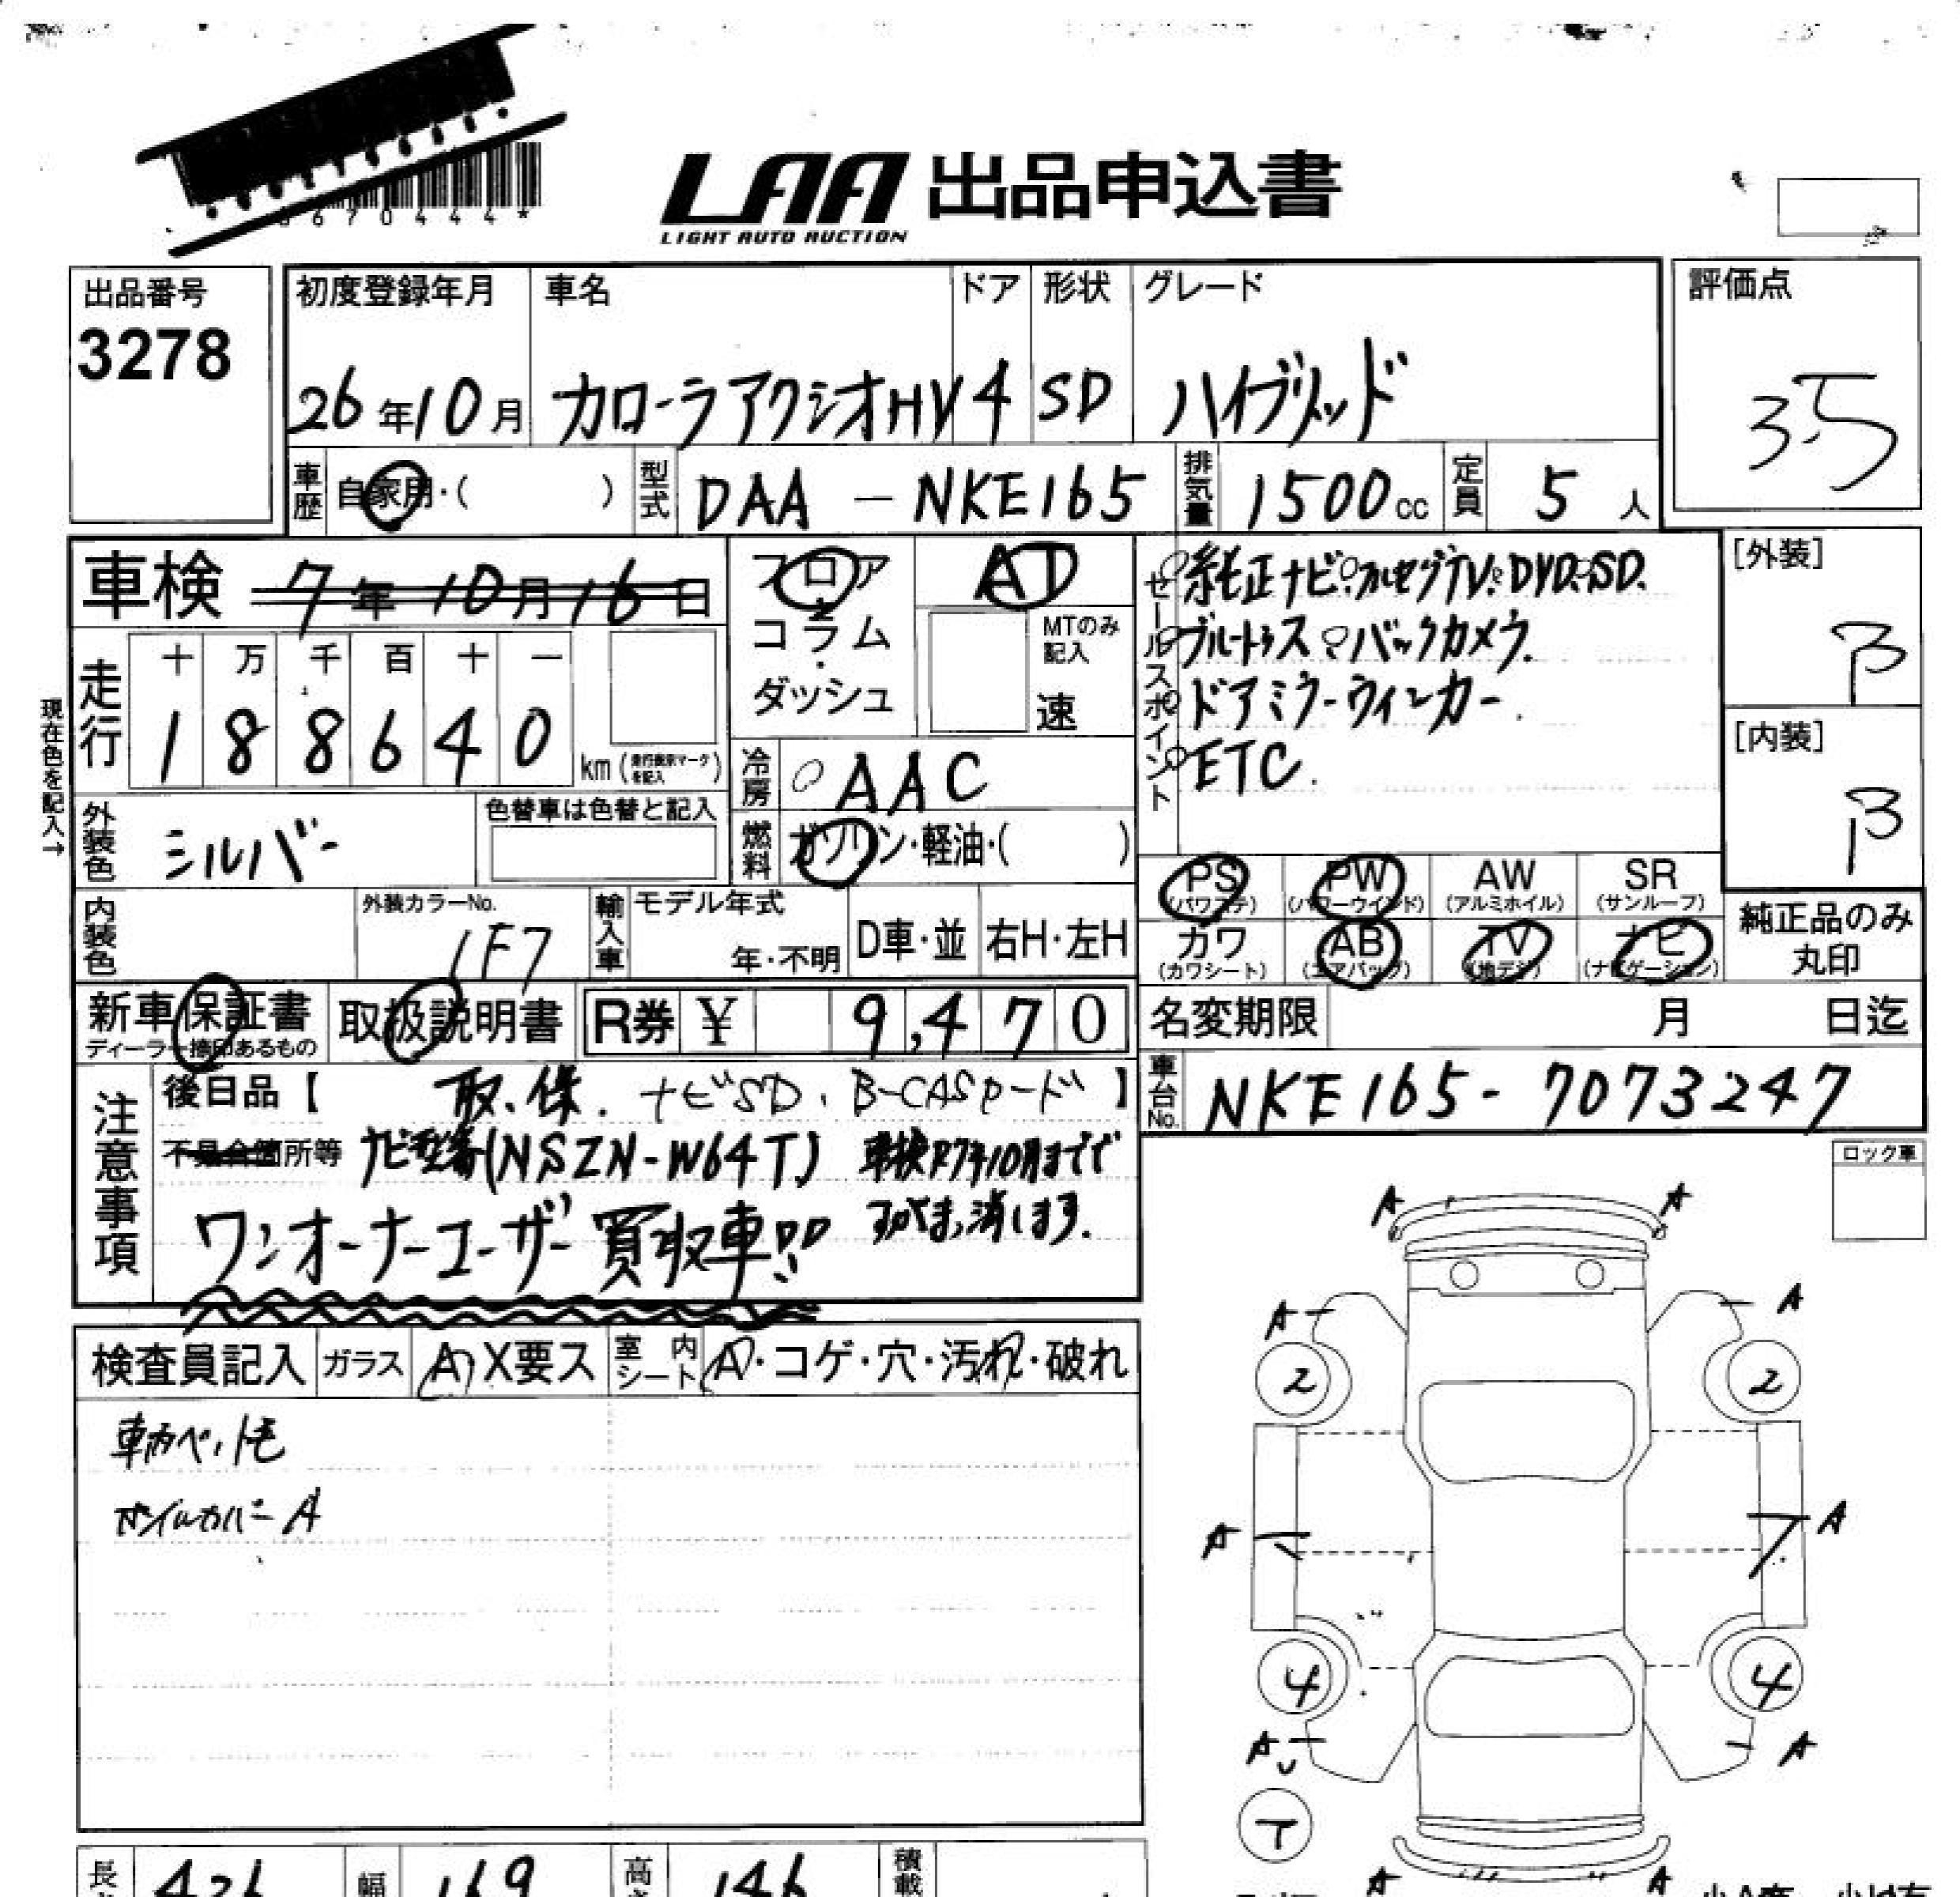 6670444*
LAA 出品申込書
LIGHT AUTO AUCTION
出品番号
3278
初度登録年月 車名 ドア 形状 グレード
26年10月 カローラアクシオHV 4 SD ハイブリッド
評価点
3.5
車歴 自家用・( ) 型式 DAA - NKE165 排気量 1500cc 定員 5人
車検 7年10月16日
フロア・コラム・ダッシュ
AT
MTのみ記入
速
セールスポイント
純正ナビ。フルセグTV。DVD。SD.
ブルートゥス。バックカメラ.
ドアミラーウィンカー.
ETC.
[外装]
B
[内装]
B
現在色を記入→
走行 十 万 千 百 十 一
1 8 8 6 4 0 km(走行表示マークを記入)
冷房 AAC
外装色 シルバー
色替車は色替と記入
燃料 ガソリン・軽油・( )
PS(パワステ) PW(パワーウインド) AW(アルミホイル) SR(サンルーフ)
カワ(カワシート) AB(エアバッグ) TV(地デジ) ナビ(ナビゲーション)
純正品のみ丸印
内装色
外装カラーNo.
1F7
輸入車 モデル年式 年・不明 D車・並 右H・左H
新車保証書 ディーラー捺印あるもの 取扱説明書 R券 ¥ 9,470
名変期限 月 日迄
車台No. NKE165-7073247
注意事項
後日品【 取、保. ナビSD、B-CASカード 】
不具合箇所等 ナビ型番(NSZN-W64T) 車検R7年10月までで
ワンオーナーユーザー買取車!! すがまっ消します.
ロック車
検査員記入 ガラス A X要ス 室内シート A・コゲ・穴・汚れ・破れ
車内ペット毛
ホイルカバーA
A A
A A
2 2
A A
4 4
A A
T
A A
長 426 幅 169 高 146 積載